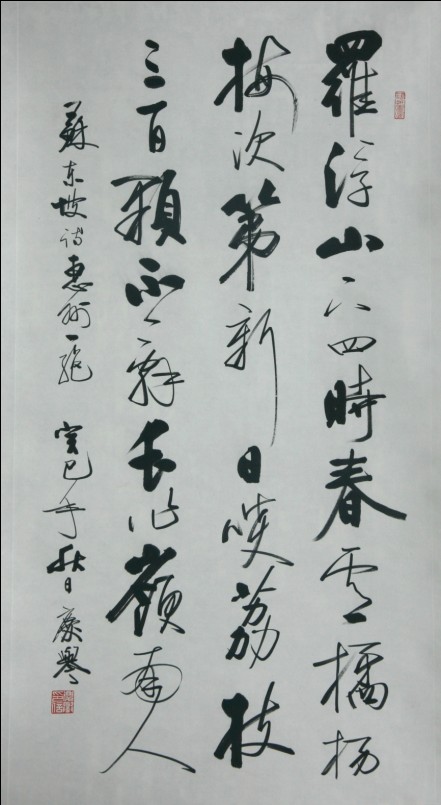 羅浮山下四時春盧橘楊
梅次第新日啖荔枝
三百顆不辭長作嶺南人
蘇東坡詩惠州一絕 癸巳年秋日